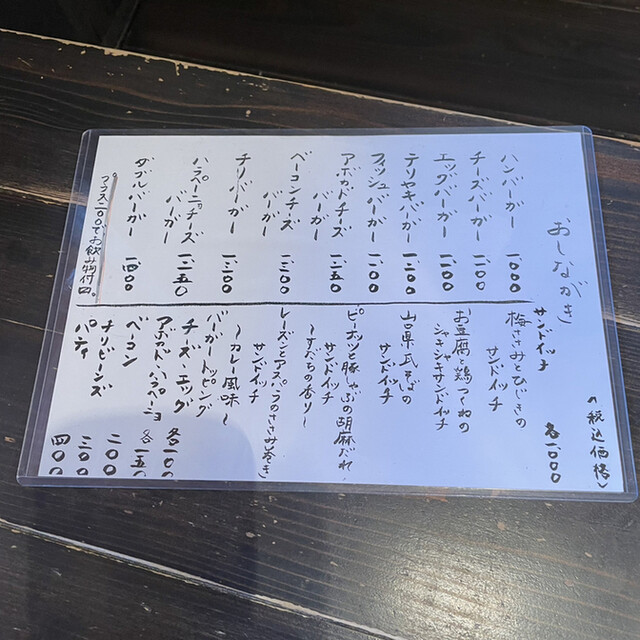 おしながき
(税込価格)
ハンバーガー 一、000
チーズバーガー 一、一00
エッグバーガー 一、一00
テリヤキバーガー 一、一00
フィッシュバーガー 一、一00
アボカドチーズ
バーガー 一、二五0
ベーコンチーズ
バーガー 一、三00
チリバーガー 一、二00
ハラペーニョチーズ
バーガー 一、二五0
ダブルバーガー 一、四00
プラス二00でお飲み物付
サンドイッチ 各一000
梅ささみとひじきの
サンドイッチ
お豆腐鶏つくねの
シャキシキサンドイッチ
山口県瓦そばの
サンドイッチ
ピーボンと豚しゃぶの胡麻だれ
サンドイッチ
〜すだちの香り〜
レーズンとアスパラのささみ巻き
サンドイッチ
〜カレー風味〜
バーガートッピング
チーズ・エッグ 各一00
アボカド・ハラペーニョ 各一五0
ベーコン 二00
チリビーンズ 二00
パティ 四00